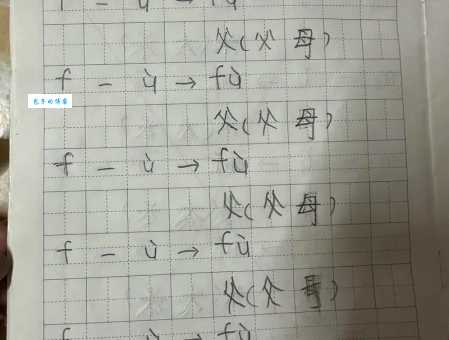 f - ù → fù
父(父母)
f - ù → fù
父(父母)
f - ù → fù
父(父母)
f - ù → fù
父(父母)
f - ù → fù